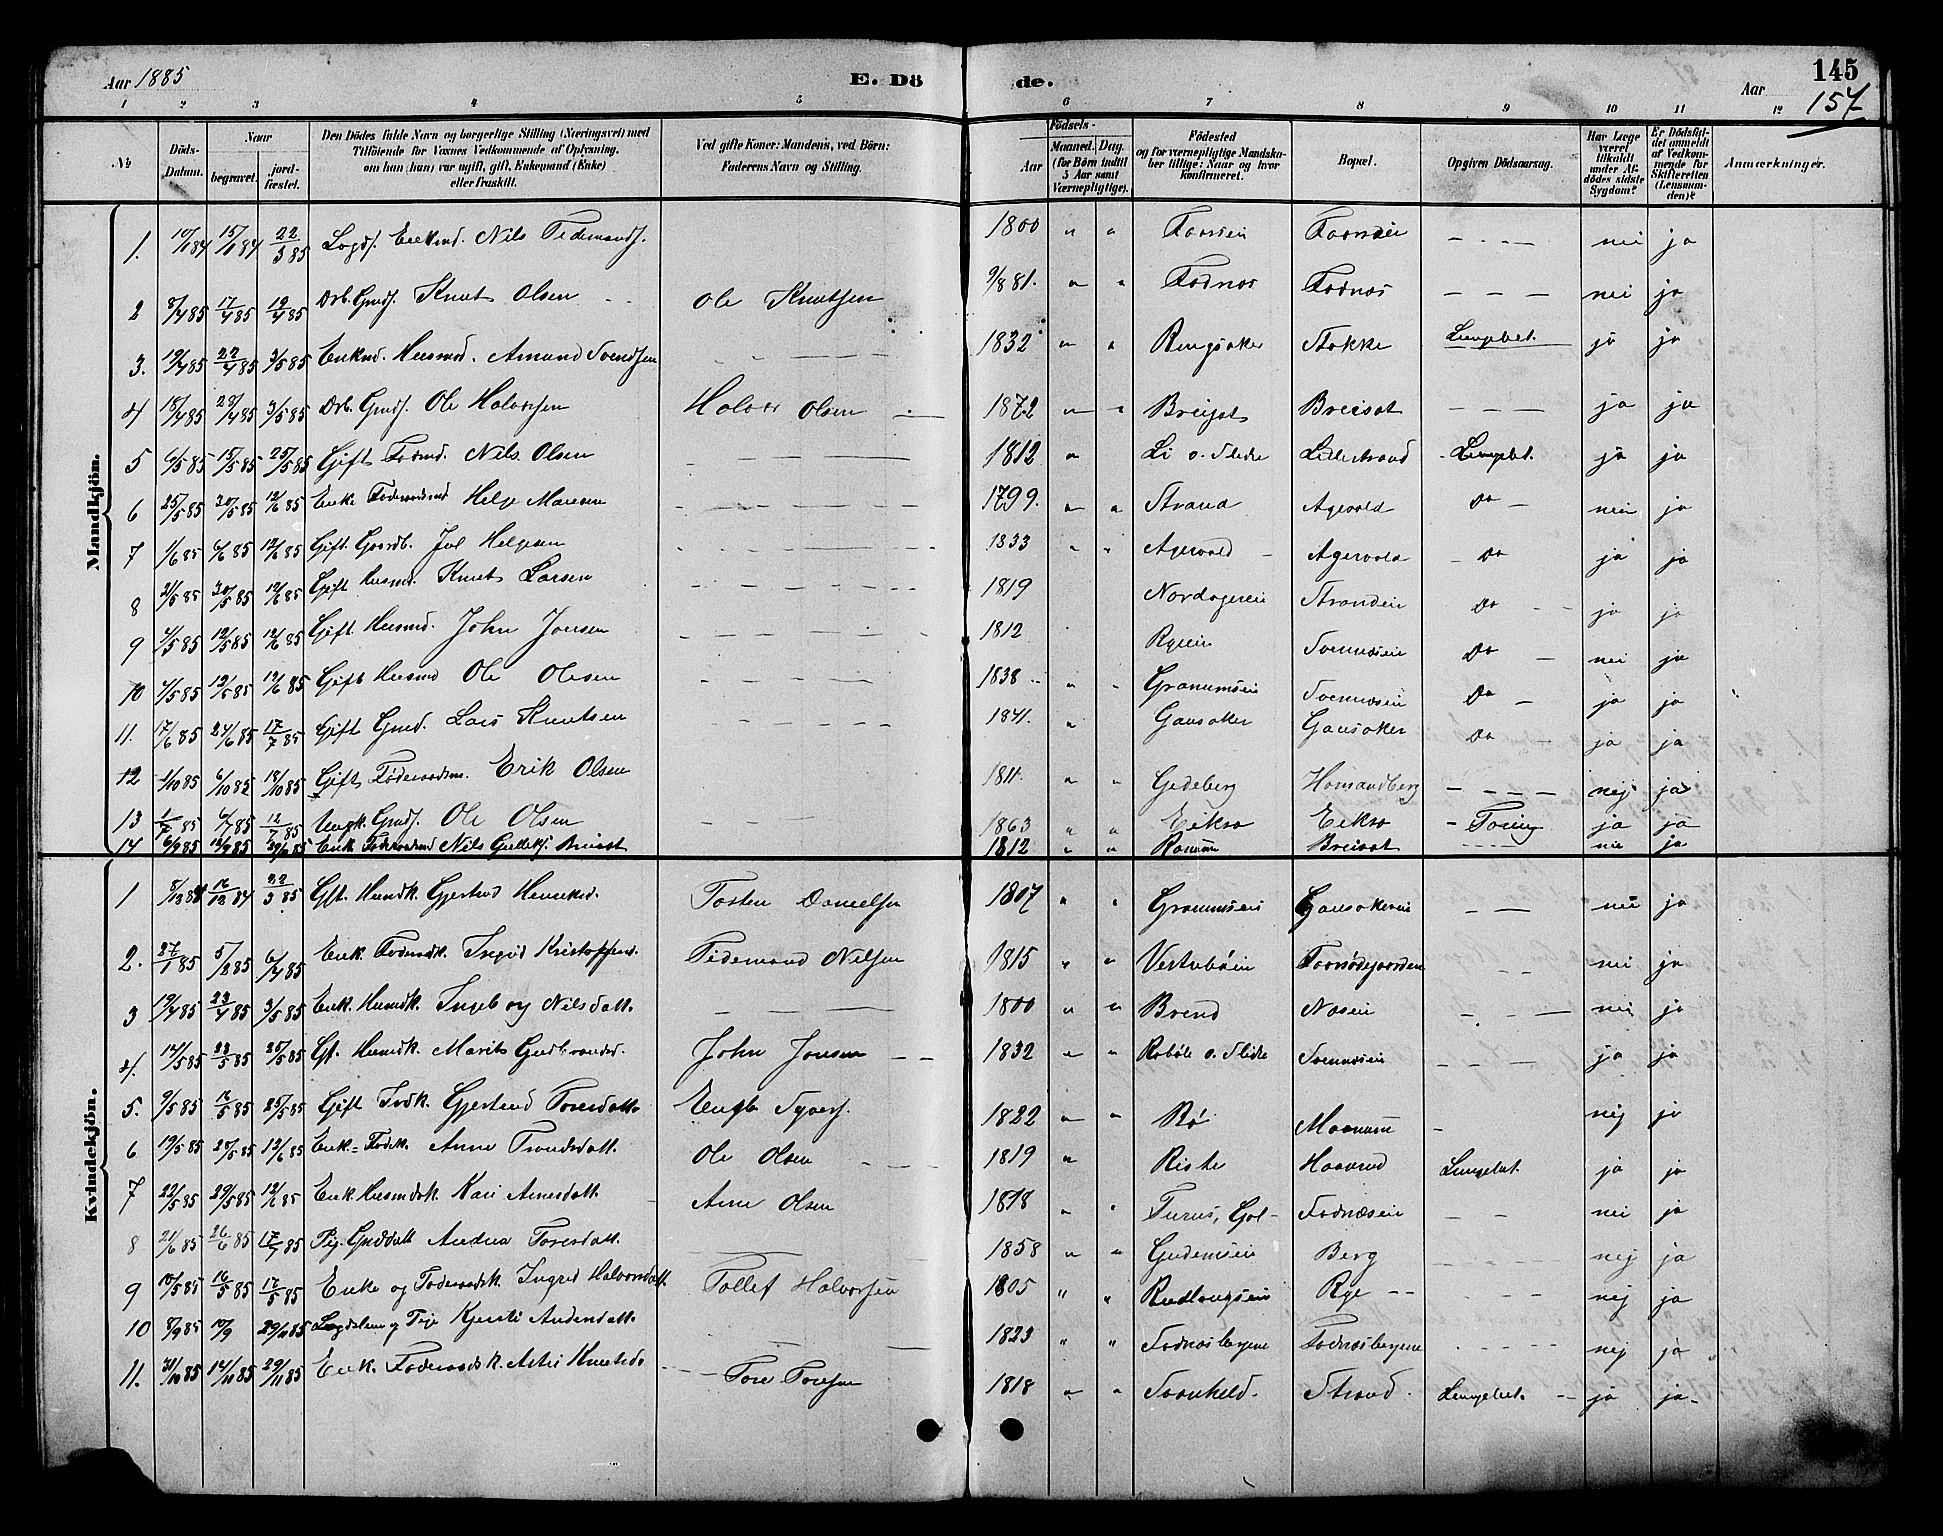 Aar 1885 E. Dö de. Aar 145
157
1 2 3 4 5 6 7 8 9 10 11 12
No Döds-Datum. Naar begravet. jord-fæstet. Den Dödes fulde Navn og borgerlige Stilling (Næringsvei) med Tilföiende for Voxnes Vedkommende af Oplysning, om han (hun) var ugift, gift, Enkemand (Enke) eller fraskilt. Ved gifte Koner: Mandens, ved Börn: Faderens Navn og Stilling. Födsels- Aar Maaned. Dag. (for Börn indtil 5 Aar samt Værnepligtige). Födested og for værnepligtige Mandska-ber tillige: Naar og hvor konfirmeret. Bopæl. Opgiven Dödsaarsag. Har Læge været tilkaldt under Af-dödes sidste Sygdom? Er Dödsfal-det anmeldt af Vedkom-mende for Skifteretten (Lensman-den)? Anmærkninger.
Mandkjön.
1. 15/1 84 22/3 85 Lægds. Enkmd. Nils Tidemands. 1800 " " nei ja
2 8/4 85 17/4 85 19/4 85 Drb. Gmds. Knut Olsen Ole Knutsen 9/8 81. " " Fodnæs Fodnæs nei ja
3. 19/4 85 22/4 85 3/5 85 Enkmd. Husmd. Amund Svendsen 1832 " " Ringsaker Stokke Lungebet. ja ja
4 18/4 85 29/4 85 3/5 85 Drb. Gmds. Ole Halvorsen Halvor Olsen 1872 " " Breiset Breiset ja ja
5 6/5 85 15/5 85 25/5 85 Gift Fodmd. Nils Olsen 1812 " Li o. Slidre Lillestrand Lungebet. ja ja
6 25/5 85 30/5 85 12/6 85 Enke Foderaadsmd Helge 1799. " " Strand Agevold Do nei ja
7 1/6 85 6/6 85 12/6 85 Gift. Gaardb. Jul Helgesen 1833 " " Agevold Agervold Do ja ja
8 21/5 85 30/5 85 12/6 85 Gift Husmd. Knut Larsen 1819 Nordagerei Strandei Do ja ja
9 4/5 85 12/5 85 12/6 85 Gift. Husmd. John Jonsen 1812 Ryeein Svennæsein Do nei ja
10 4/5 85 12/5 85 12/6 85 Gift Husmd Ole Olesen 1838 " " Granumsei Svennæsein Do ja ja
11. 17/6 85 24/6 85 17/7 85 Gift Gmd. Lars Knutsen 1841. " Gausaker Gausaker Do ja ja
12 1/10 85 6/10 85 18/10 85 Gift Føderaadsm. Erik Olsen 1811. " " Gedeberg Homandberg nej ja
13 1/7 85 6/7 85 12/7 85 Ungk. Gmds. Ole Olsen 1863 " " Eikro Eikro Tæring ja ja
14 6/9 85 Enk. Foderaadsmd Nils Gulleks. Breiset 1812 " " Ranum Breiset nei ja
Kvindekjön.
1 16/12 84 22/3 85 Gft. Husmdk. Gjertrud Henriksd. Tosten Danielsen 1807 " " Granumsein Gausakerein nei ja
2. 27/1 85 5/2 85 6/4 85 Enk. Foderaadk. Ingrid Kristophersd. Tidemand Nilsen 1815 " " nei ja
3 19/4 85 23/4 85 3/5 85 Enk. Husmdk. Ingeborg Nilsdatt. 1800 " " Brend Næsein nei ja
4. 12/5 85 23/5 85 25/5 85 Gt. Husmdk. Marit Gudbrandsd. John Jonsen 1832 " " Robøle o. Slidre Svennæsein ja ja
5. 9/5 85 16/5 85 25/5 85 Gift Fodk. Gjertrud Toresdatt. Engb Syvers. 1822 " " Rø nej ja
6 19/5 85 28/5 85 12/6 85 Enk= Fodk. Anne Trondsdatt. Ole Olsen 1819 " Riste Haavrud Lungebet. ja ja
7 22/5 85 29/5 85 12/6 85 Enk. Husmdsk. Kari Arnesdatt. Arne Olsen 1818 " " Turus, Gol- Fodnæsein nei ja
8 21/6 85 26/6 85 17/7 85 Pig. Gmddatt Andrea Toresdatt. 1858 " " Gudemsein Berg nej ja
9 10/5 85 16/5 85 17/5 85 Enke og Foderaadsk. Ingrid Halvorsdatt. Tollef Halvorsen 1805 " " Rye nej ja
10 8/9 85 10/9 29/11 85 Lægdslem og Pige Kjersti Andersdatt. 1823 " " Fodnæsbergene Fodnæsbergene nej ja
11. 31/10 85 14/11 85 29/11 85 Enk. Foderaadsk. Astri Knutsd. Tore Toresen 1818 " " Strand. Lungebet. ja ja